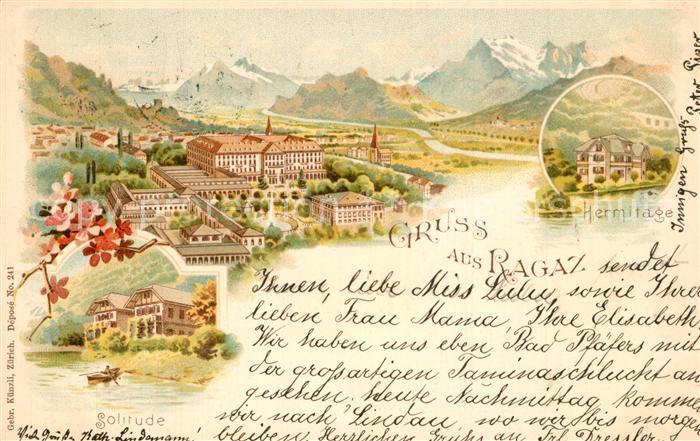 Innigen Gruß
Hermitage
GRUSS
AUS RAGAZ sendet
Ihnen, liebe Miss Lulu, sowie Ihrer
lieben Frau Mama, Ihre Elisabeth.
Wir haben uns eben Bad Pfäfers mit
der großartigen Taminaschlucht an-
gesehen, heute Nachmittag kommen
wir nach Lindau, wo wir bis morgen
bleiben. Herzlichen Gruß an
Solitude
Viele Grüße Käth. Lindemann!
Gebr. Künzli, Zürich. Déposé No. 241